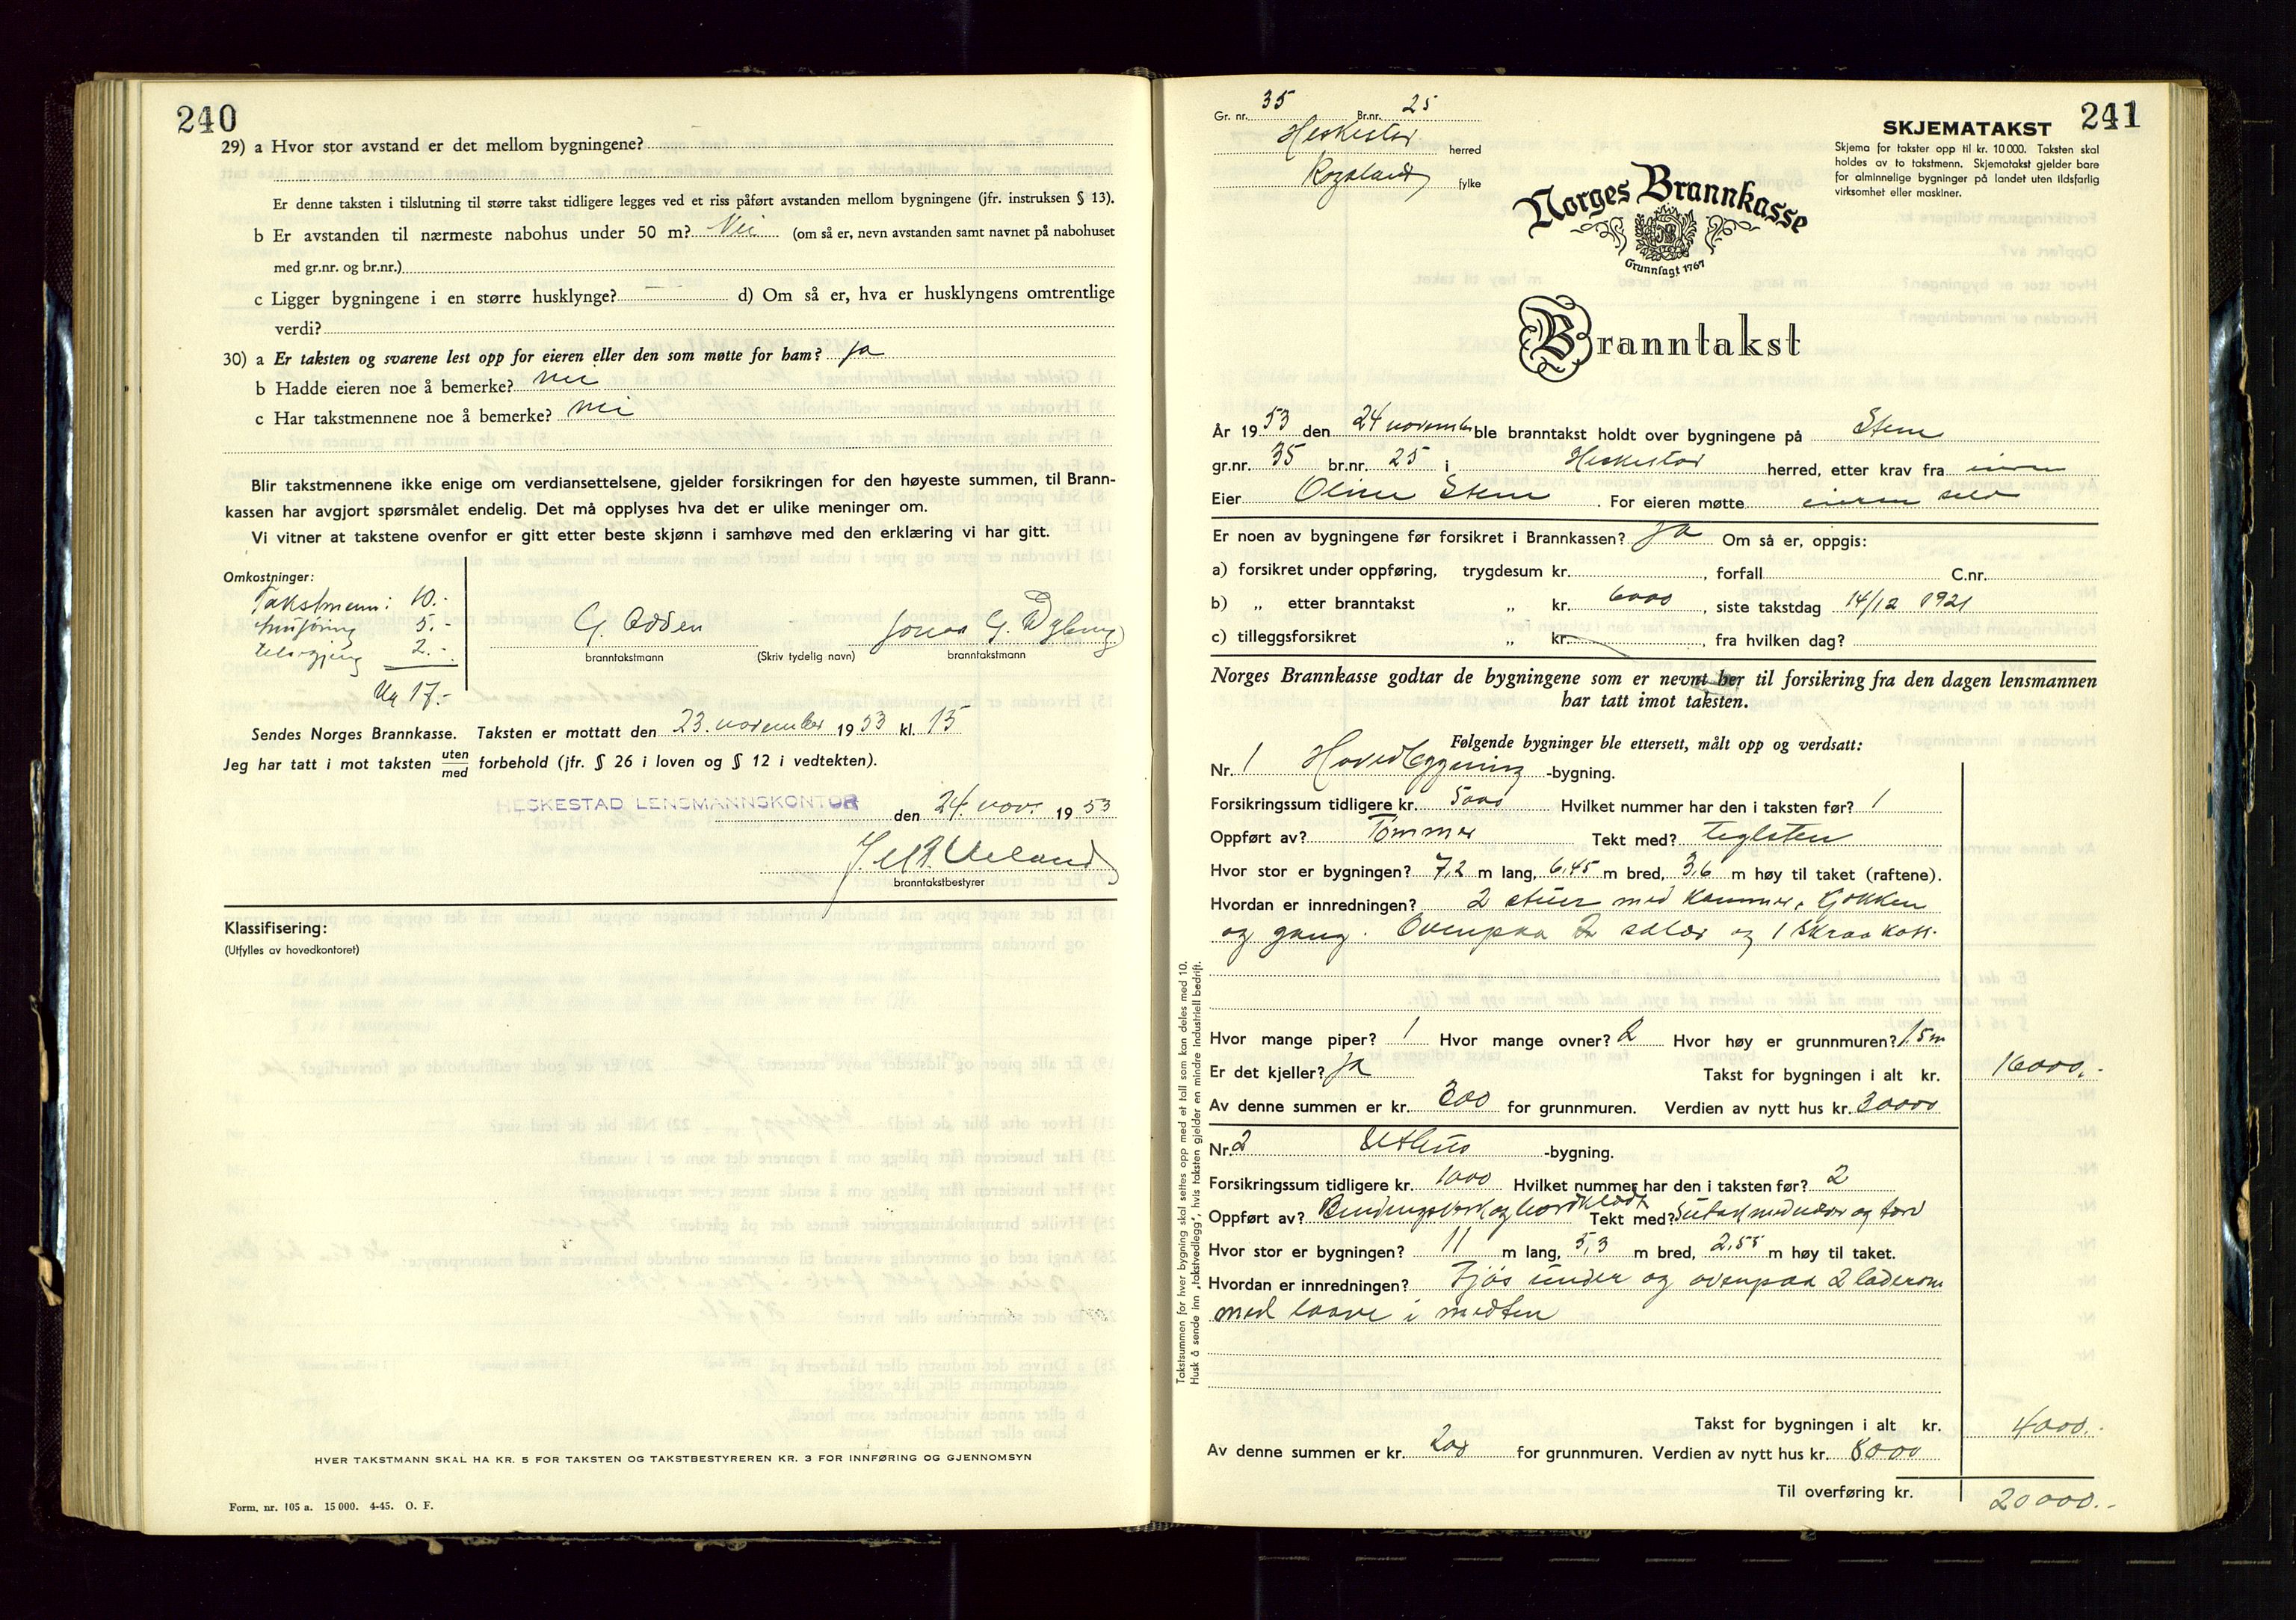 240
29) a Hvor stor avstand er det mellom bygningene?
Er denne taksten i tilslutning til større takst tidligere legges ved et riss påført avstanden mellom bygningene (jfr. instruksen § 13).
b Er avstanden til nærmeste nabohus under 50 m? Nei (om så er, nevn avstanden samt navnet på nabohuset
med gr.nr. og br.nr.)
c Ligger bygningene i en større husklynge? — d) Om så er, hva er husklyngens omtrentlige
verdi?
30) a Er taksten og svarene lest opp for eieren eller den som møtte for ham? ja
b Hadde eieren noe å bemerke? nei
c Har takstmennene noe å bemerke? nei
Blir takstmennene ikke enige om verdiansettelsene, gjelder forsikringen for den høyeste summen, til Brann-
kassen har avgjort spørsmålet endelig. Det må opplyses hva det er ulike meninger om.
Vi vitner at takstene ovenfor er gitt etter beste skjønn i samhøve med den erklæring vi har gitt.
Omkostninger:
Takstmenn: 10.-
Innføring 5.-
2.-
Kr 17.-
G. Odden Jonas G.
branntakstmann (Skriv tydelig navn) branntakstmann
Sendes Norges Brannkasse. Taksten er mottatt den 23. november 1953 kl. 15
Jeg har tatt i mot taksten uten/med forbehold (jfr. § 26 i loven og § 12 i vedtekten).
HESKESTAD LENSMANNSKONTOR den 24. nov. 1953
Ueland
branntakstbestyrer
Klassifisering:
(Utfylles av hovedkontoret)
HVER TAKSTMANN SKAL HA KR. 5 FOR TAKSTEN OG TAKSTBESTYREREN KR. 3 FOR INNFØRING OG GJENNOMSYN
Form. nr. 105 a. 15 000. 4-45. O. F.
241
Gr. nr. 35 Br.nr. 25
Heskestad herred
Rogaland fylke
SKJEMATAKST
Skjema for takster opp til kr. 10 000. Taksten skal
holdes av to takstmenn. Skjematakst gjelder bare
for alminnelige bygninger på landet uten ildsfarlig
virksomhet eller maskiner.
Norges Brannkasse
Grunnlagt 1767
Branntakst
År 1953 den 24 november ble branntakst holdt over bygningene på Stene
gr.nr. 35 br.nr. 25 i Heskestad herred, etter krav fra eieren
Eier Oline Stene. For eieren møtte eieren selv
Er noen av bygningene før forsikret i Brannkassen? Ja Om så er, oppgis:
a) forsikret under oppføring, trygdesum kr. , forfall C.nr.
b) „ etter branntakst „ kr. 6000, siste takstdag 14/12 1921
c) tilleggsforsikret „ kr. , fra hvilken dag?
Norges Brannkasse godtar de bygningene som er nevnt her til forsikring fra den dagen lensmannen
har tatt imot taksten.
Følgende bygninger ble ettersett, målt opp og verdsatt:
Nr. 1 Hovedbygning -bygning.
Forsikringssum tidligere kr. 5000 Hvilket nummer har den i taksten før? 1
Oppført av? Tømmer Tekt med? teglsten
Hvor stor er bygningen? 7,2 m lang, 6,45 m bred, 3,6 m høy til taket (raftene).
Hvordan er innredningen? 2 stuer med kammer, kjøkken
og gang. Ovenpaa 2 saler og 1 skraakott.
Hvor mange piper? 1 Hvor mange ovner? 2 Hvor høy er grunnmuren? 1,5 m
Er det kjeller? ja Takst for bygningen i alt kr. 16000.-
Av denne summen er kr. 800 for grunnmuren. Verdien av nytt hus kr. 30000
Nr. 2 Uthus -bygning.
Forsikringssum tidligere kr. 1000 Hvilket nummer har den i taksten før? 2
Oppført av? Bindingsverk og bordklædt Tekt med? Sutak med never og torv
Hvor stor er bygningen? 11 m lang, 5,3 m bred, 2,55 m høy til taket.
Hvordan er innredningen? Fjøs under og ovenpaa 2 laderom
med laave i midten
Takst for bygningen i alt kr. 4000.-
Av denne summen er kr. 200 for grunnmuren. Verdien av nytt hus kr. 8000
Til overføring kr. 20000.-
Takstsummen for hver bygning skal settes opp med et tall som kan deles med 10.
Husk å sende inn „takstvedlegg", hvis taksten gjelder en mindre industriell bedrift.